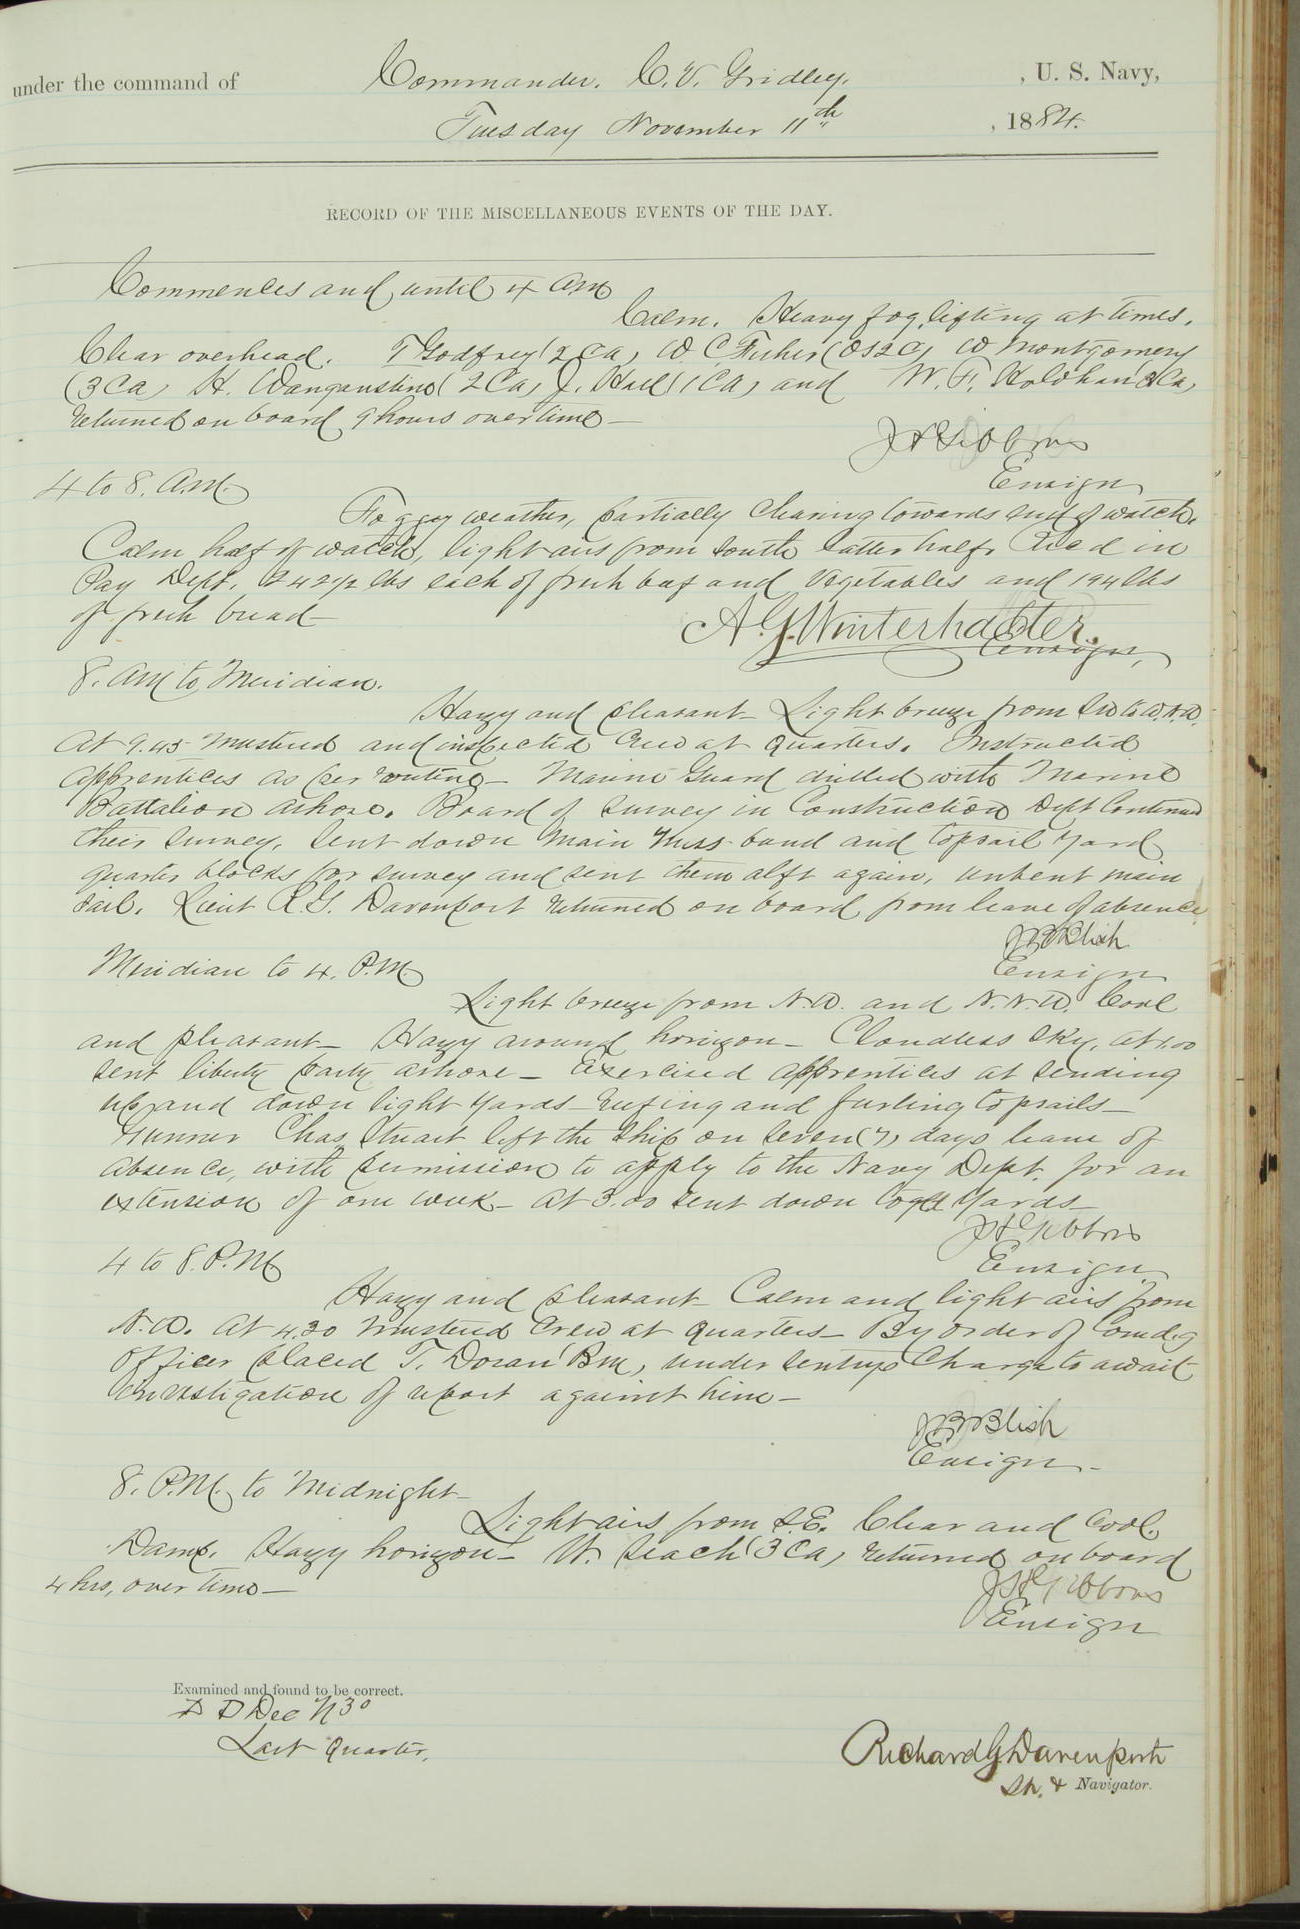 under the command of Commander. C. V. Gridley. , U. S. Navy,
Tuesday November 11th , 1884.
RECORD OF THE MISCELLANEOUS EVENTS OF THE DAY.
Commences and until 4 a.m
Calm. Heavy fog, lifting at times.
Clear overhead. T Godfrey (2 Ca) W C Fisher (OS2C) W Montgomery
(3 Ca) H. Wanganstino (2 Ca) J. Hall (1 Ca) and W. F. Holohan (3 Ca)
returned on board 9 hours overtime—
J H Gibbons
Ensign
4 to 8. A.M.
Foggy weather, partially clearing towards end of watch.
Calm half of watch, light airs from South latter half. Rec'd in
Pay Dept. 242 1/2 lbs each of fresh beef and vegetables and 194 lbs
of fresh bread—
A. G. Winterhalter.
Ensign,
8. AM to Meridian.
Hazy and pleasant— Light breeze from SW to W.N.W.
At 9.45 mustered and inspected crew at quarters. Instructed
apprentices as per routine— Marine Guard drilled with Marine
Battalion ashore. Board of Survey in Construction Dept Continued
their survey. Sent down main truss band and topsail yard
quarter blocks for survey and sent them alft again, unbent main
sail. Lieut R. G. Davenport returned on board from leave of absence
J B Blish
Ensign
Meridian to 4. P.M.
Light breeze from N.W. and N.N.W. Cool
and pleasant— Hazy around horizon— Cloudless sky. At 1.00
sent liberty party ashore— Exercised apprentices at sending
up and down light yards— Reefing and furling topsails—
Gunner Chas Stuart left the ship on seven (7) days leave of
absence, with permission to apply to the Navy Dept. for an
extension of one week— At 3.00 sent down togll yards—
J H Gibbons
Ensign
4 to 8. P.M.
Hazy and pleasant— Calm and light airs from
N.W. At 4.30 mustered crew at quarters— By order of Comdg
Officer placed T. Doran (Bm) under sentrys charge to await
investigation of report against him—
J B Blish
Ensign—
8. P.M. to Midnight—
Light airs from S.E. Clear and Cool.
Damp. Hazy horizon— W. Leach (3 Ca) returned on board
4 hrs, over time—
J H Gibbons
Ensign
Examined and found to be correct.
D D Dec N 30
Last Quarter.
Richard G Davenport
Lt. & Navigator.